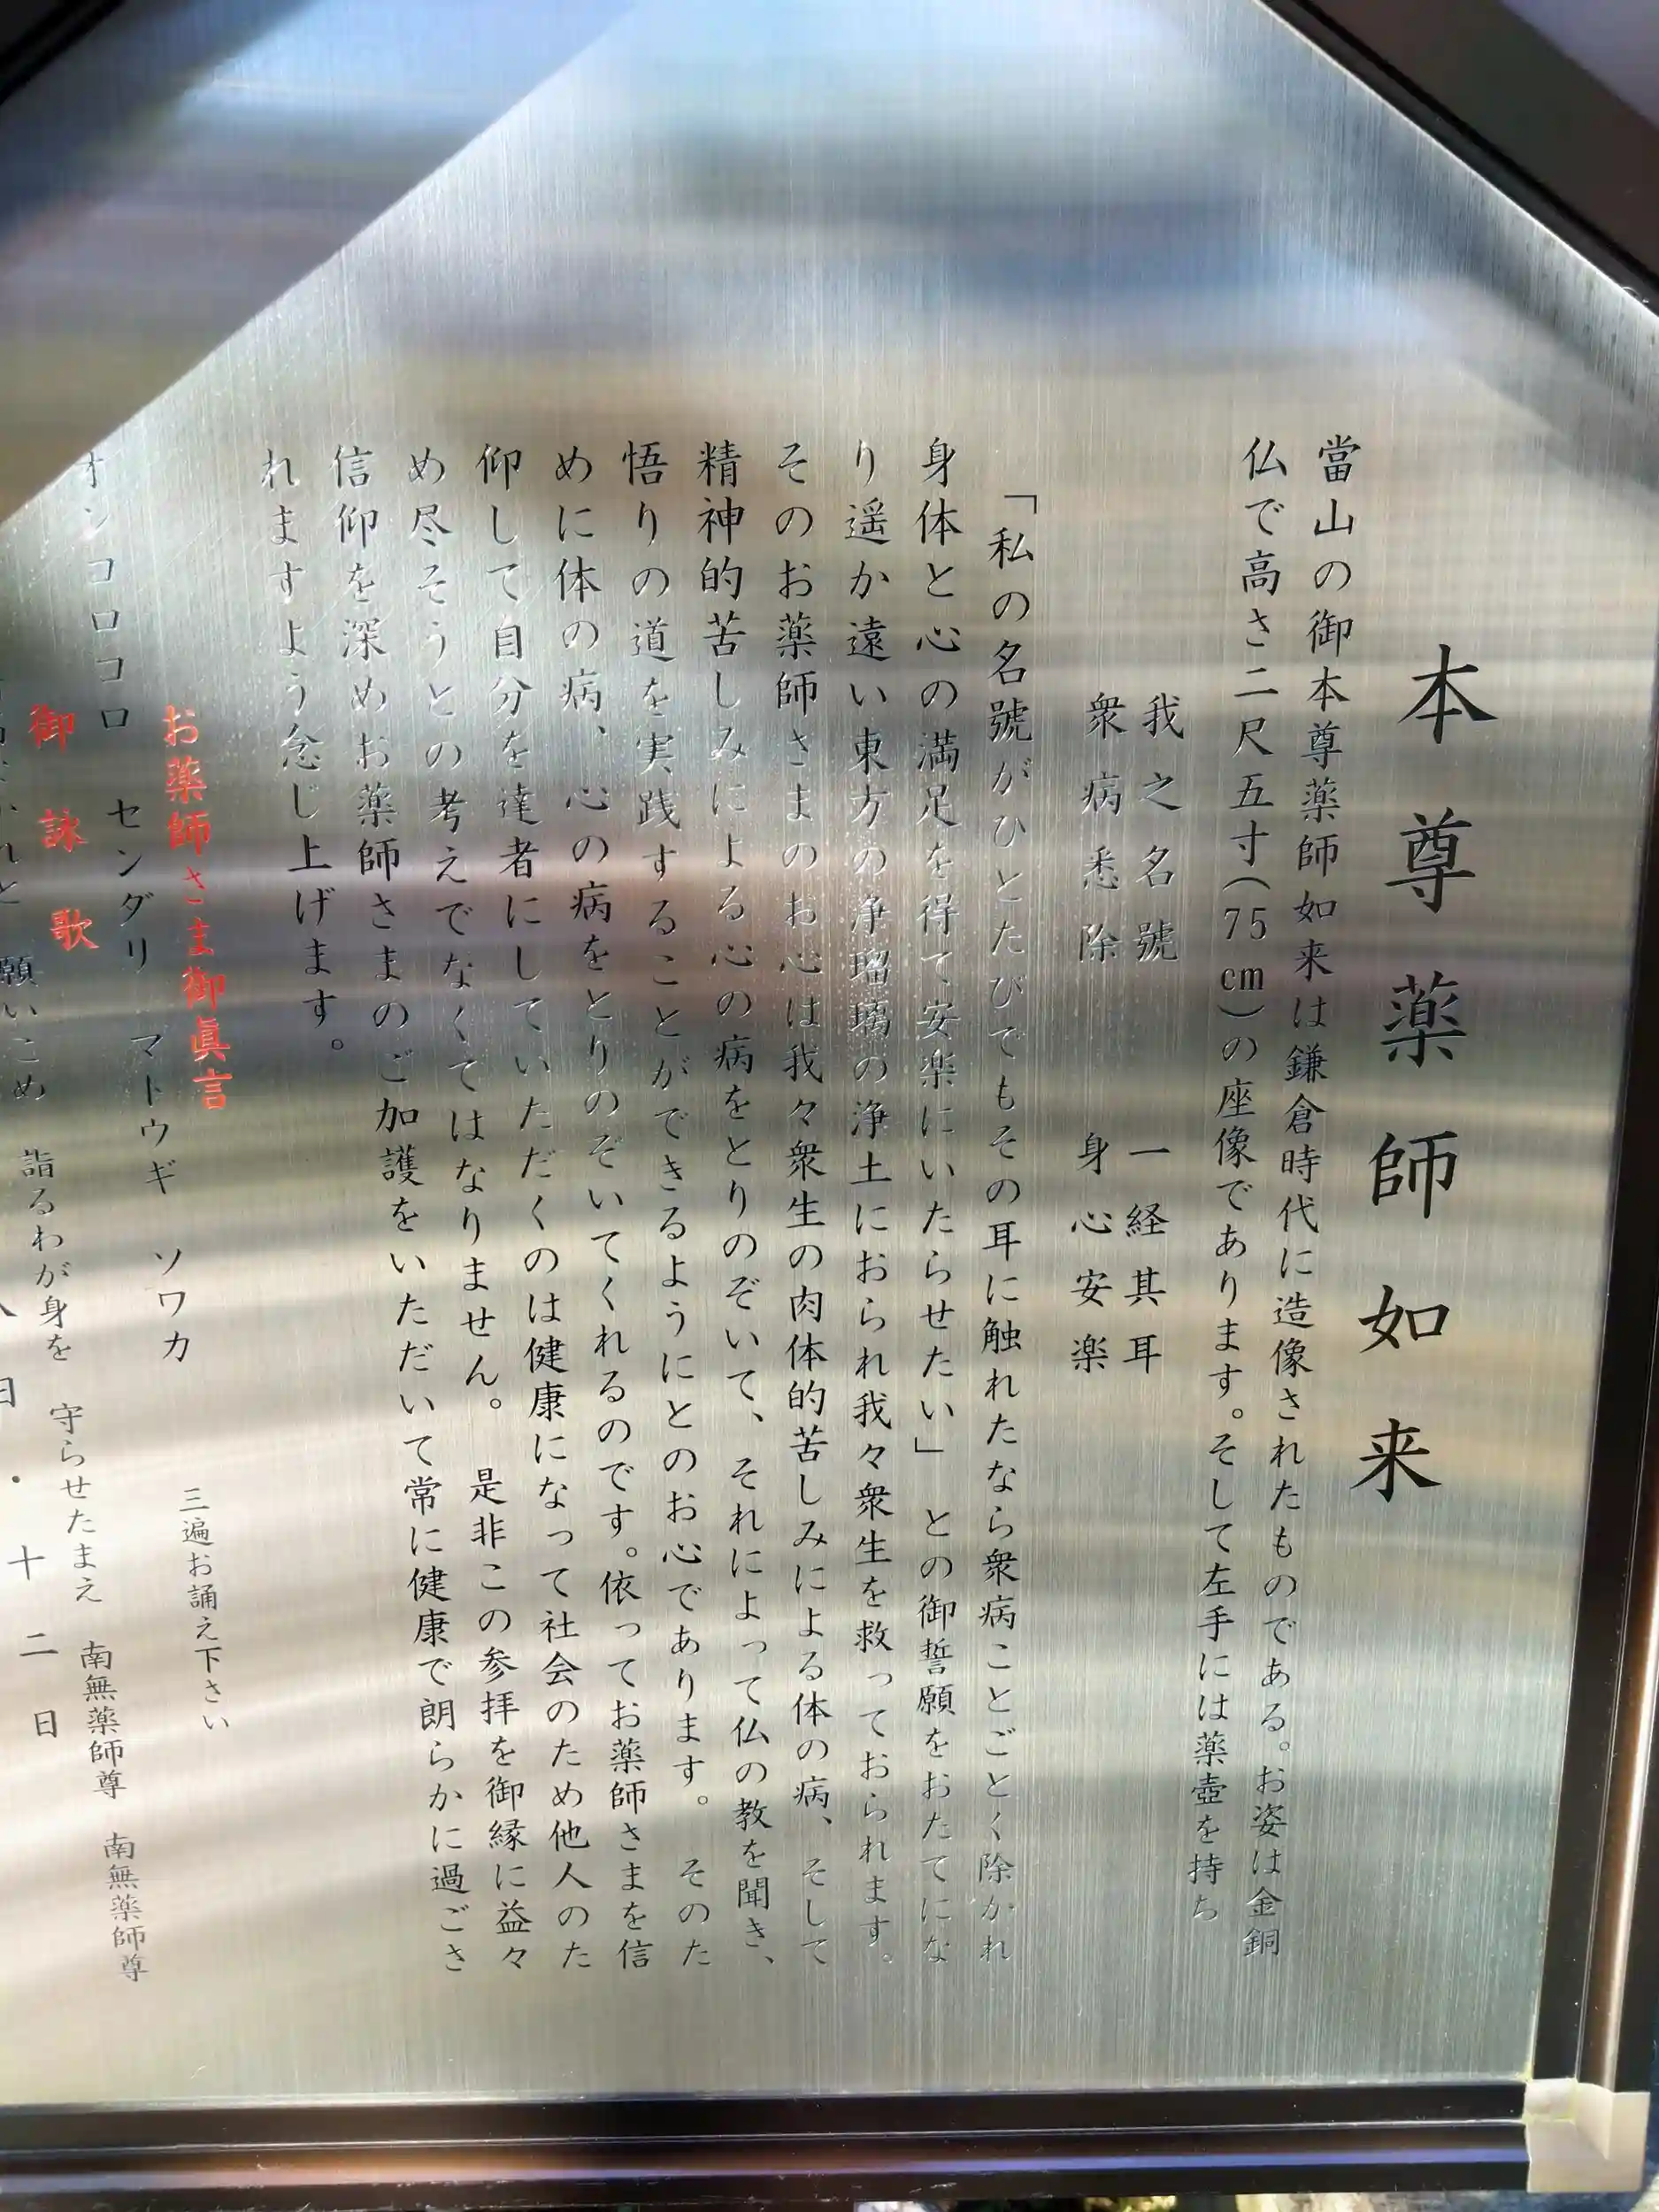 本尊薬師如来
當山の御本尊薬師如来は鎌倉時代に造像されたものである。お姿は金銅
仏で高さ二尺五寸(75cm)の座像であります。そして左手には薬壺を持ち
我之名號 一経其耳
衆病悉除 身心安楽
「私の名號がひとたびでもその耳に触れたなら衆病ことごとく除かれ
身体と心の満足を得て、安楽にいたらせたい」との御誓願をおたてにな
り遥か遠い東方の浄瑠璃の浄土におられ我々衆生を救っておられます。
そのお薬師さまのお心は我々衆生の肉体的苦しみによる体の病、そして
精神的苦しみによる心の病をとりのぞいて、それによって仏の教を聞き、
悟りの道を実践することができるようにとのお心であります。そのた
めに体の病、心の病をとりのぞいてくれるのです。依ってお薬師さまを信
仰して自分を達者にしていただくのは健康になって社会のため他人のた
め尽そうとの考えでなくてはなりません。是非この参拝を御縁に益々
信仰を深めお薬師さまのご加護をいただいて常に健康で朗らかに過ごさ
れますよう念じ上げます。
お薬師さま御眞言
三遍お誦え下さい
オンコロコロ センダリ マトウギ ソワカ
御詠歌
願いこめ 詣るわが身を 守らせたまえ 南無薬師尊 南無薬師尊
日・十二日